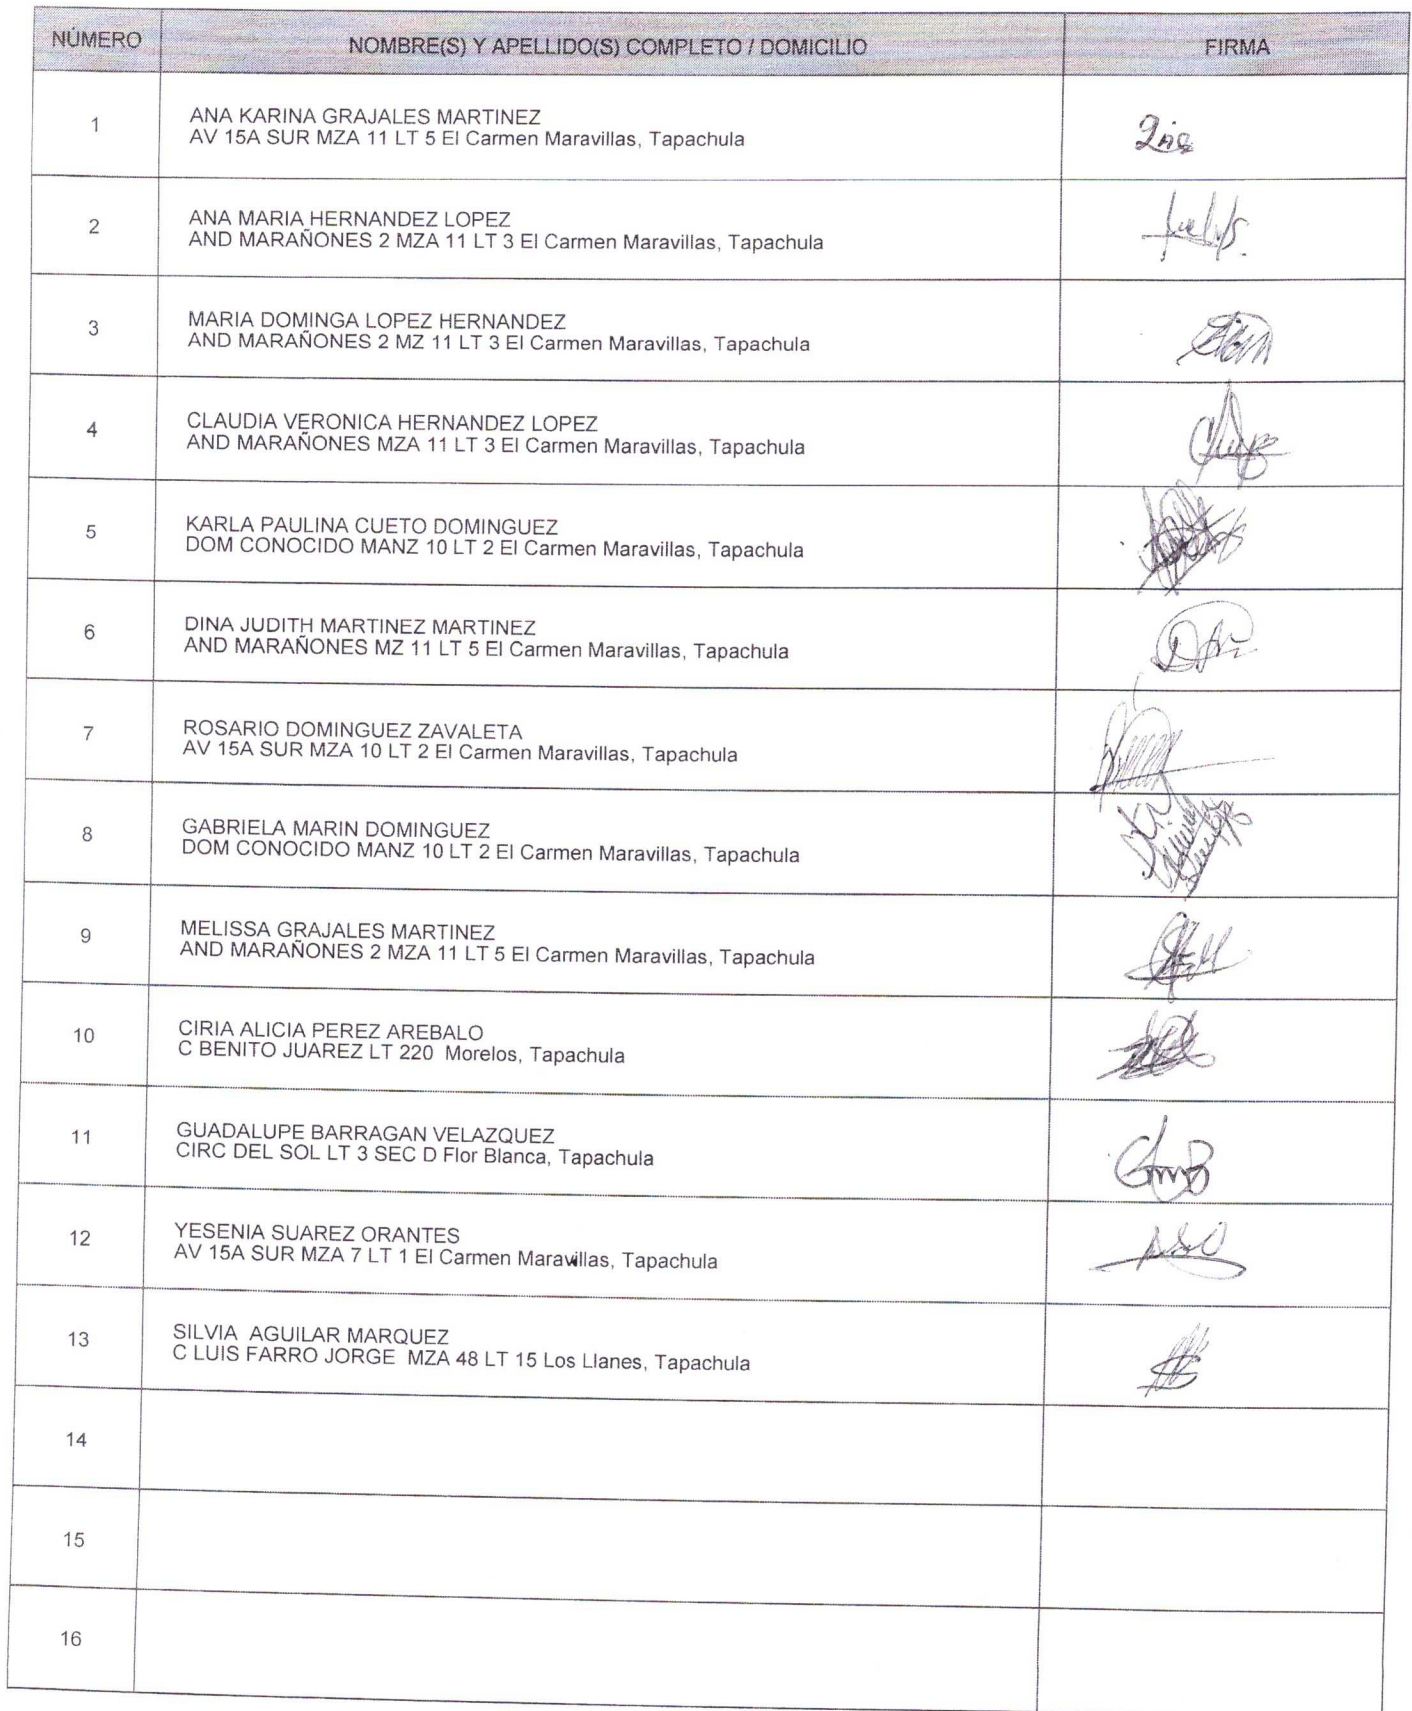 NÚMERO NOMBRE(S) Y APELLIDO(S) COMPLETO / DOMICILIO FIRMA
1 ANA KARINA GRAJALES MARTINEZ
AV 15A SUR MZA 11 LT 5 El Carmen Maravillas, Tapachula
2 ANA MARIA HERNANDEZ LOPEZ
AND MARAÑONES 2 MZA 11 LT 3 El Carmen Maravillas, Tapachula
3 MARIA DOMINGA LOPEZ HERNANDEZ
AND MARAÑONES 2 MZ 11 LT 3 El Carmen Maravillas, Tapachula
4 CLAUDIA VERONICA HERNANDEZ LOPEZ
AND MARAÑONES MZA 11 LT 3 El Carmen Maravillas, Tapachula
5 KARLA PAULINA CUETO DOMINGUEZ
DOM CONOCIDO MANZ 10 LT 2 El Carmen Maravillas, Tapachula
6 DINA JUDITH MARTINEZ MARTINEZ
AND MARAÑONES MZ 11 LT 5 El Carmen Maravillas, Tapachula
7 ROSARIO DOMINGUEZ ZAVALETA
AV 15A SUR MZA 10 LT 2 El Carmen Maravillas, Tapachula
8 GABRIELA MARIN DOMINGUEZ
DOM CONOCIDO MANZ 10 LT 2 El Carmen Maravillas, Tapachula
9 MELISSA GRAJALES MARTINEZ
AND MARAÑONES 2 MZA 11 LT 5 El Carmen Maravillas, Tapachula
10 CIRIA ALICIA PEREZ AREBALO
C BENITO JUAREZ LT 220 Morelos, Tapachula
11 GUADALUPE BARRAGAN VELAZQUEZ
CIRC DEL SOL LT 3 SEC D Flor Blanca, Tapachula
12 YESENIA SUAREZ ORANTES
AV 15A SUR MZA 7 LT 1 El Carmen Maravillas, Tapachula
13 SILVIA AGUILAR MARQUEZ
C LUIS FARRO JORGE MZA 48 LT 15 Los Llanes, Tapachula
14
15
16